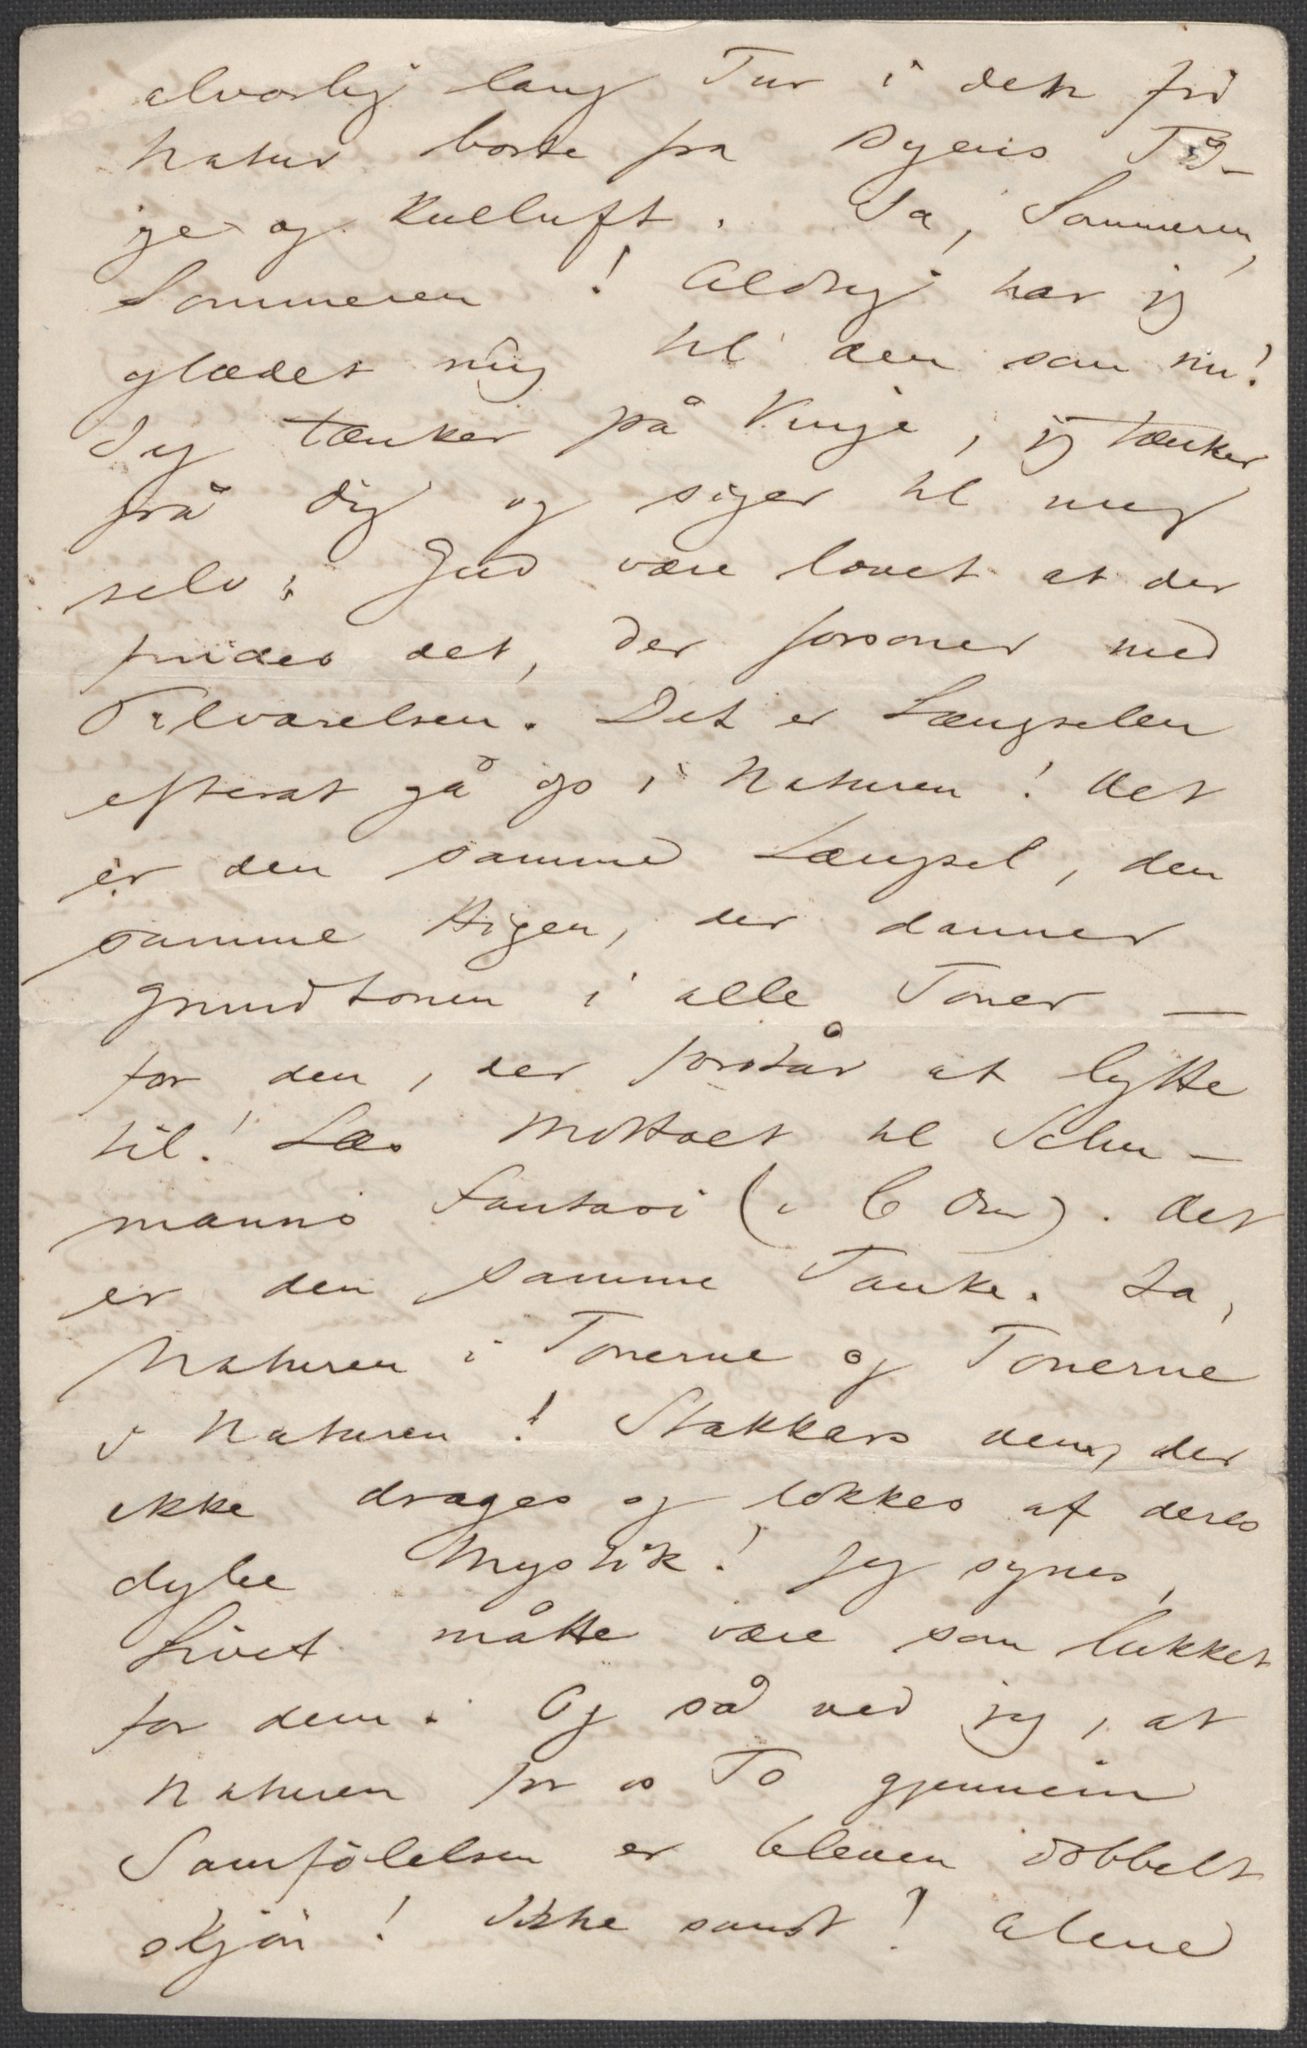 alvorlig lang Tur i den fri
Natur borte fra Byens Tå-
ge og Kulluft. Ja, Sommeren,
Sommeren! Aldrig har jeg
glædet mig til den som nu!
Jeg tænker på Vinje, jeg tænker
på dig og siger til mig
selv: Gud være lovet at der
findes det, der forsoner med
Tilværelsen. Det er Længselen
efterat gå op i Naturen! Det
er den samme Længsel, den
samme Higen, der danner
Grundtonen i alle Toner —
for den, der forstår at lytte
til! Læs Mottoet til Schu-
manns Fantasi (i C Dur). Det
er den samme Tanke. Ja,
Naturen i Tonerne og Tonerne
i Naturen! Stakkars dem, der
ikke drages og lokkes af deres
dybe Mystik! Jeg synes,
Livet måtte være som lukket
for dem. Og så ved jeg, at
Naturen for os To gjennem
Samfölelsen er bleven dobbelt
skjön! Ikke sandt? Alene